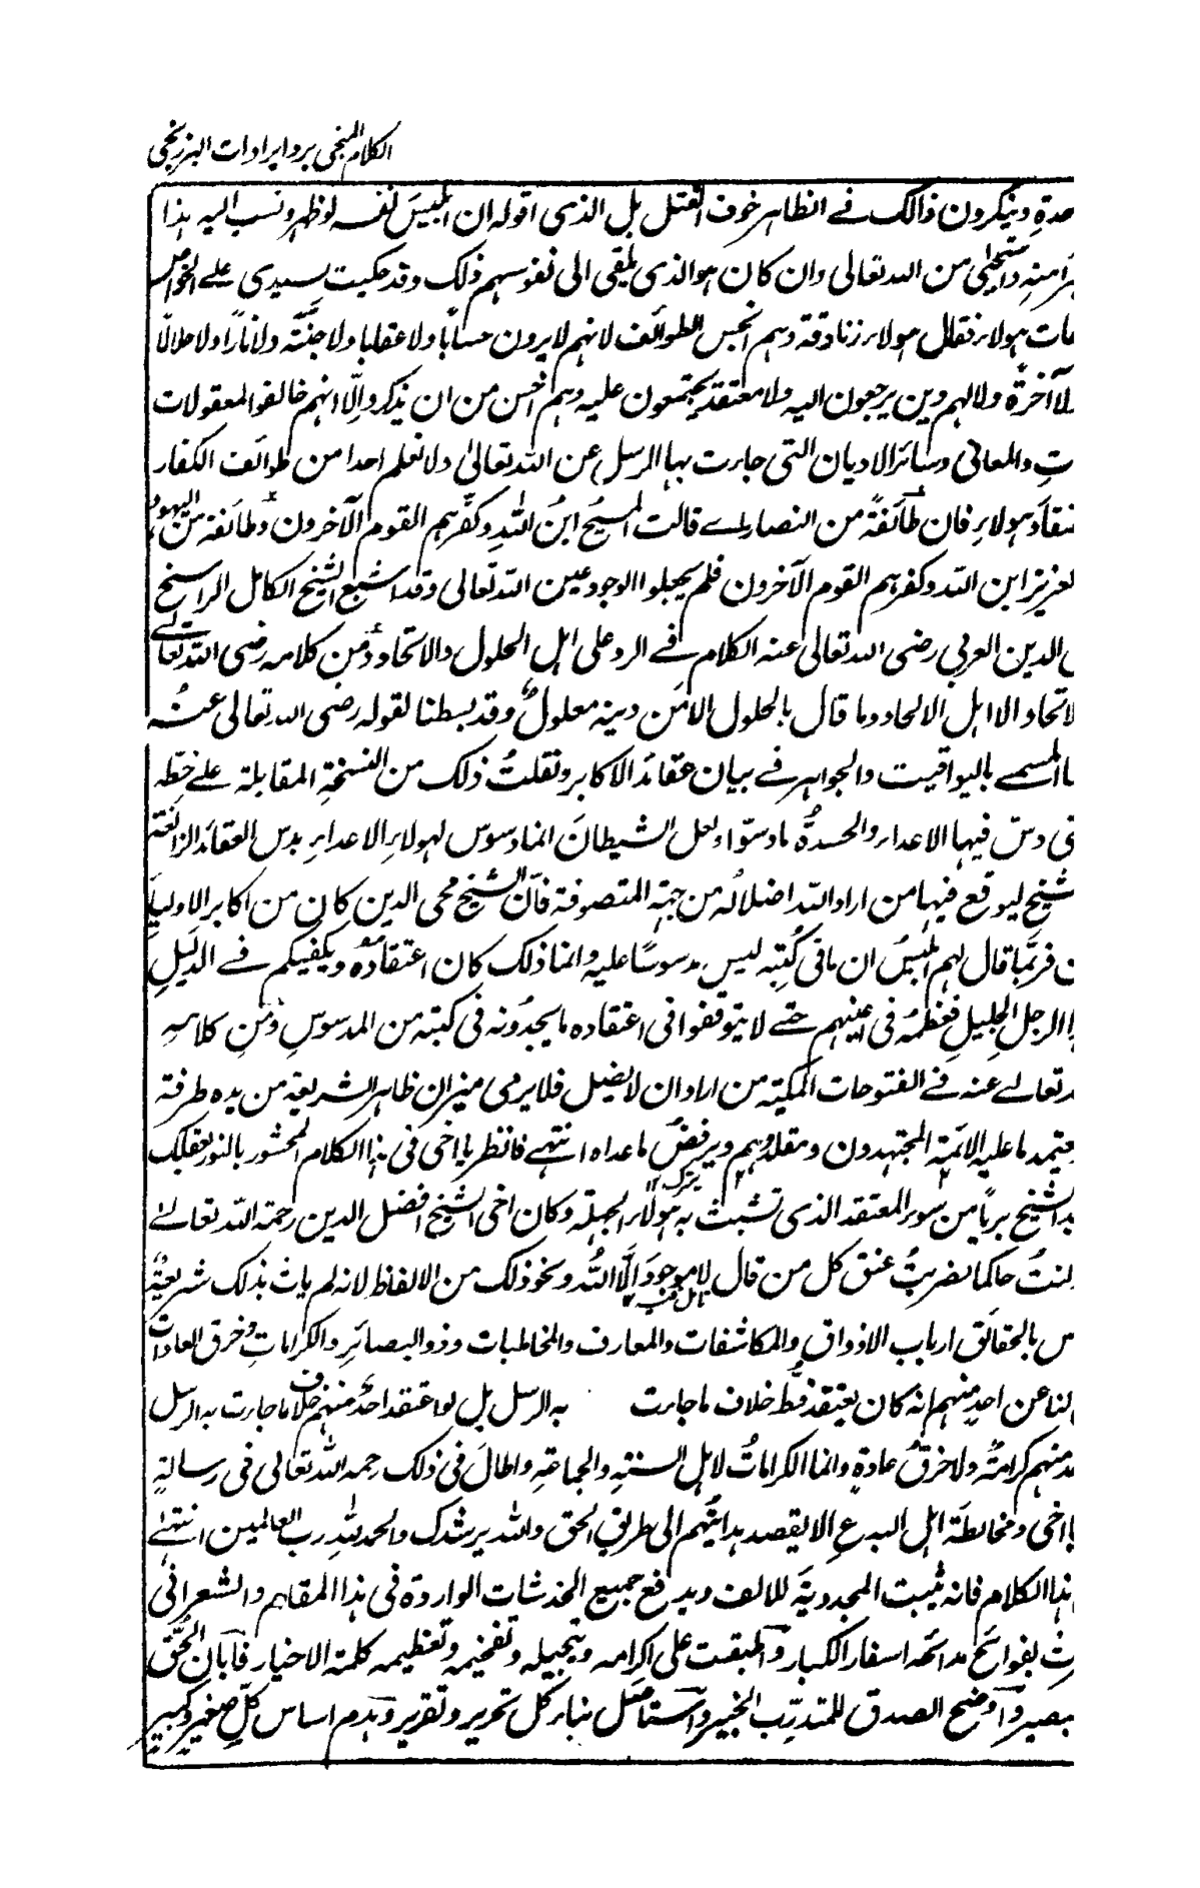 الكلام المنجى برد ايرادات البرزنجى
حدةِ وينكرون ذالك فے الظاهر خوف القتل بل الذى اقوله ان ابليسَ نفسه لو ظهر ونسب اليه هذا
منه واستحيٰى من الله تعالى وان كان هو الذى يلقى الى نفوسهم ذلك وقد حكيت لسيدى علے الخواص
هولاء فقال هولاء زنادقة وهم انجس الطوائف لانهم لا يرون حساباً ولا عقابا ولا جنّةً ولا ناراً ولا حلالاً
ولا آخرةً ولا لهم دين يرجعون اليه ولا معتقد يجتمعون عليه وهم اخس من ان يذكروا الّا انهم خالفوا المعقولات
والمعانى وسائر الاديان التى جاءت بها الرسل عن الله تعالىٰ ولا نعلم احدا من طوائف الكفار
هولاءِ فان طائفةً من النصارىٰے قالت المسيح ابنُ اللهِ وكفّرهم القوم الآخرون وطائفة من اليهود
العزيز ابن الله وكفرهم القوم الآخرون فلم يجعلوا الوجود عين الله تعالى وقد اشبع الشيخ الكامل الراسخ
الدين العربى رضى الله تعالى عنه الكلام فے الرد على اهل الحلول والاتحاد ومن كلامه رضى الله تعالےٰ
الاتحاد الا اهل الالحاد وما قال بالحلول الا مَن دينه معلول وقد بسطنا لقوله رضى الله تعالى عنه
المسمے باليواقيت والجواهر فے بيان عقائد الاكابر ونقلتُ ذلك من النسخةِ المقابلة علے خطّه
دسّ فيها الاعداء والحسدةُ ما دسّوا ولعل الشيطانَ انما وسوس لهولاءِ الاعداءِ بدس العقائد الزائغة
الشيخ ليوقع فيها من اراد الله اضلالُه من جهة المتصوفة فانّ الشيخ محى الدين كان من اكابر الاولياء
فربّما قال لهم ابليسُ ان ما فى كُتِبه ليس مدسوسًا عليه وانما ذلك كان اعتقادُه ويكفيكم فے الدليلِ
الرجل الجليلِ فعظّمهُ فى اعينهم حتے لا يتوقفوا فى اعتقاده ما يجدونه فى كتبه من المدسوسِ ومَنِ كلامهِ
تعالےٰ عنه فے الفتوحات المكيّة من اراد ان لا يضل فلا يرمى ميزان ظاهر الشريعة من يده طرفة
يعتمد ما عليه الائمة المجتهدون ومقلدوهم ويرفضُ ما عداه انتهے فانظر يا اخى فى هذا الكلام المحشور بالنور بقلبك
يترك ١٢
الشيخ برياً من سوء المعتقد الذى تشبّث به هولاءِ الجهلة وكان اخى الشيخ افضل الدين رحمة الله تعالےٰ
كنتُ حاكما لضربتُ عنق كل من قال لا موجودَ الّا اللهُ ونحو ذلك من الالفاظ لانه لم يات بذلك شريعة
بالحقائق ارباب الاذواق والمكاشفات والمعارف والمخاطبات وذو البصائرِ والكراماتِ وخرق العادات
لنا عن احدٍ منهم انه كان يعتقد قط خلاف ما جاءت به الرسل بل لو اعتقد احدٌ منهم خلاف ما جاءت به الرسل
منهم كرامةٌ ولا خرقُ عادةٍ وانما الكراماتُ لاهل السنة والجماعةِ واطالَ فى ذلك رحمه الله تعالى فى رسالةٍ
يا اخى ومخالطةَ اهل البدعِ الا بقصد هدايتهم الى طريق الحق والله يرشدك والحمد للهِ رب العالمين انتهےٰ
هذا الكلام فانه يثبت المجدويةَ للالف ويدفع جميع الخدشات الواردة فى هذا المقام والشعرانىُّ
بفوائح مدائحه اسفار الكبار واطبقت على اكرامه وتبجيله وتفخيمه وتعظيمه كلمة الاخيار فابان الحقَّ
بصير واوضح الصدق للمتدرّب الخبير واستاصَل بناء كل تحرير وتقرير وهدم اساس كلِّ صغيرٍ وكبيرٍ